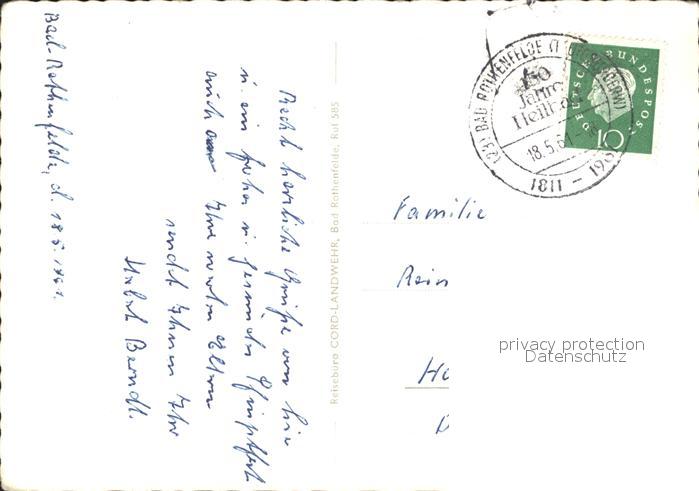 Bad-Rothenfelde, d. 18.5.1961.
Recht herzliche Grüße von hier
u. ein frohes u. gesundes Pfingstfest
auch Ihren werten Eltern
sendet Ihnen Ihr
Berndt.
Reisebüro CORD-LANDWEHR, Bad Rothenfelde, Ruf 585
(23) BAD ROTHENFELDE (T
150
Jahre
Heilbad
18.5.61
1811 – 196
DEUTSCHE BUNDESPOST
10
Familie
Rein
privacy protection
Datenschutz